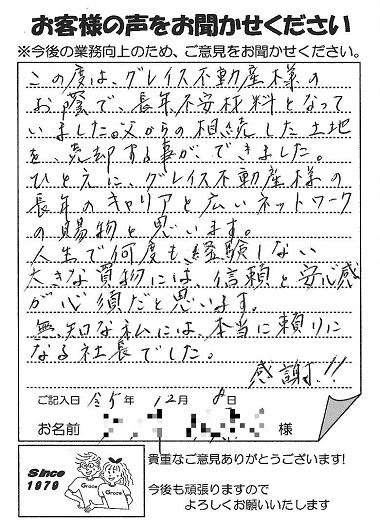 お客様の声をお聞かせください
※今後の業務向上のため、ご意見をお聞かせください。
この度は、グレイス不動産様の
お蔭で、長年不安材料となって
いました。父からの相続した土地
を、売却する事が、できました。
ひとえに、グレイス不動産様の
長年のキャリアと広いネットワーク
の賜物と思います。
人生で何度も経験しない
大きな買物には、信頼と安心感
が必須だと思います。
無知な私には、本当に頼りに
なる社長でした。
感謝!!
ご記入日 令5年 12月 8日
お名前 様
Since
1979
Grace
Grace
貴重なご意見ありがとうございます!
今後も頑張りますので
よろしくお願いいたします